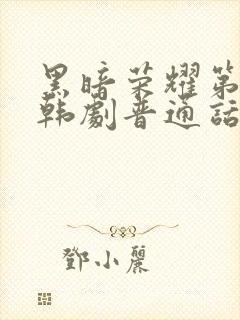 黑暗荣耀第
韩剧普通话
鄧小麗